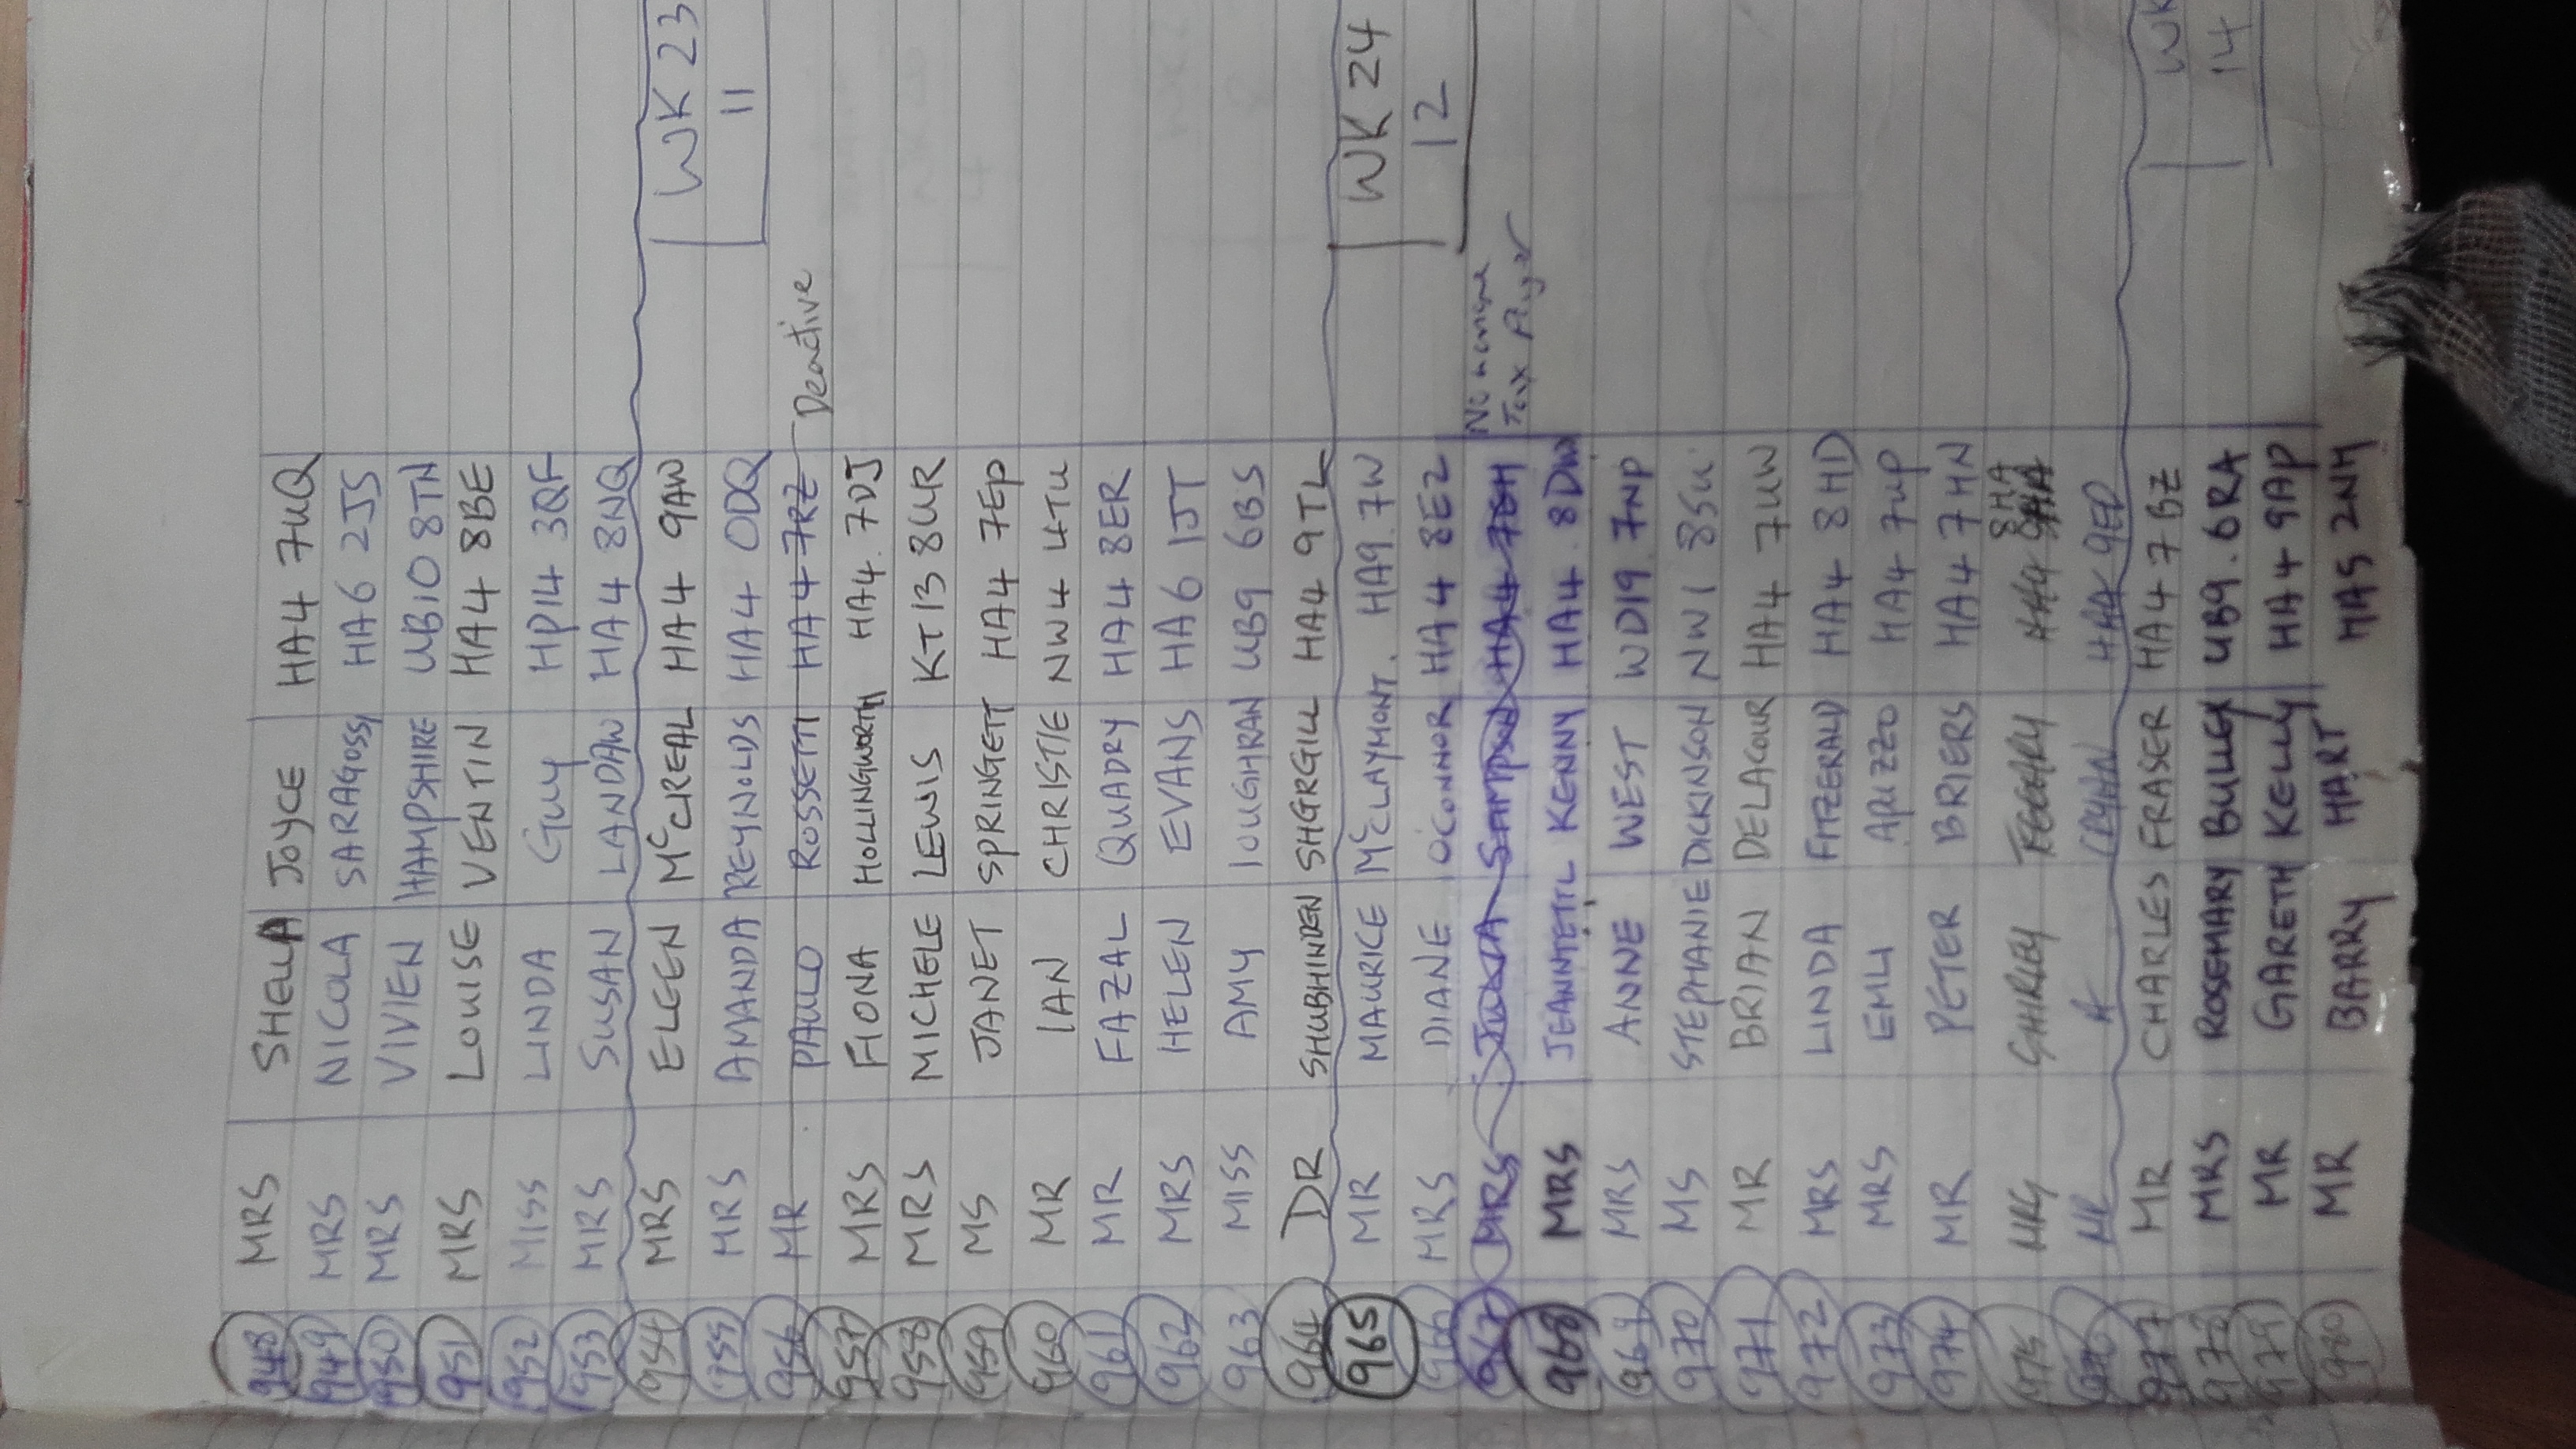 948 MRS SHEILA JOYCE HA4 7UQ
949 MRS NICOLA SARAGOSSI HA6 2JS
950 MRS VIVIEN HAMPSHIRE UB10 8TN
951 MRS LOUISE VENTIN HA4 8BE
952 MISS LINDA GUY HP14 3QF
953 MRS SUSAN LANDAW HA4 8NQ
954 MRS EILEEN McCREAL HA4 9AW WK 23
955 MRS AMANDA REYNOLDS HA4 0DQ 11
956 MR PAULO ROSSETTI HA4 7RZ Deactive
957 MRS FIONA HOLLINGWORTH HA4. 7DJ
958 MRS MICHELE LEWIS KT13 8UR
959 MS JANET SPRINGETT HA4 7EP
960 MR IAN CHRISTIE NW4 4TU
961 MR FAZAL QUADRY HA4 8ER
962 MRS HELEN EVANS HA6 1JT
963 MISS AMY LOUGHRAN UB9 6BS
964 DR SHUBHINDEN SHGRGILL HA4 9TL
965 MR MAURICE McCLAYMONT. HA9. 7W WK 24
966 MRS DIANE OCONNOR HA4 8EZ 12
967 MRS JULIA SAMPSON HA4 No longer
Tax Payer
968 MRS KENNY HA4 8DW
969 MRS ANNE WEST WD19 7NP
970 MS STEPHANIE DICKINSON NW1 8SU
971 MR BRIAN DELACOUR HA4 7UW
972 MRS LINDA FITZERALD HA4 8HD
973 MRS EMLI APUZZO HA4 7UP
974 MR PETER BRIERS HA4 7HN
975 MRS SHIRLEY 8HA
976 MR A HA4 9ED
977 MR CHARLES FRASER HA4 7BZ WK
978 MRS ROSEMARY UB9. 6RA 14
979 MR GARETH KELLY HA4 9AP
980 MR BARRY HART HA5 2NH